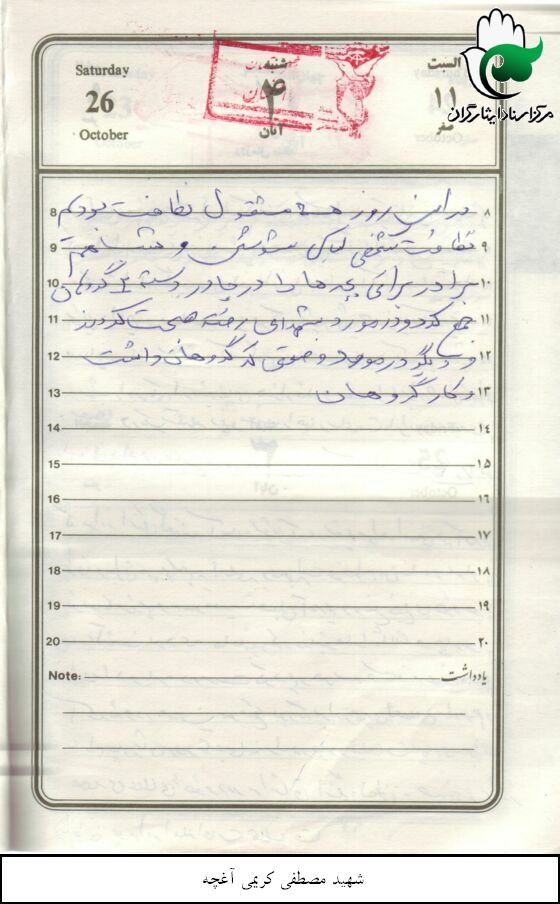 Saturday
26
October
شنبه
۴
آبان
السبت
۱۱
صفر
مرکز اسناد ایثارگران
8 در این روز همه مشغول نظافت بودیم ۸
9 نظافت شخصی لباس شوشتن و ۹
10 برادر برای بچه ها را در چادر دسته ۱۰
11 جمع کرد و در مورد شهدای صحبت کردند ۱۱
12 و دیگر در مورد وضعی که گروهان داشت ۱۲
13 و کار گروهان ۱۳
14 ۱٤
15 ۱۵
16 ۱٦
17 ۱۷
18 ۱۸
19 ۱۹
20 ۲۰
Note: یادداشت
شهید مصطفی کریمی آغچه